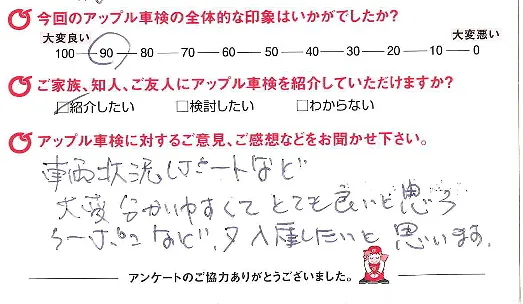 今回のアップル車検の全体的な印象はいかがでしたか?
大変良い 大変悪い
100 90 80 70 60 50 40 30 20 10 0
ご家族、知人、ご友人にアップル車検を紹介していただけますか?
紹介したい 検討したい わからない
アップル車検に対するご意見、ご感想などをお聞かせ下さい。
車両状況レポートなど
大変分かりやすくてとても良いと思う
など、又入庫したいと思います。
アンケートのご協力ありがとうございました。